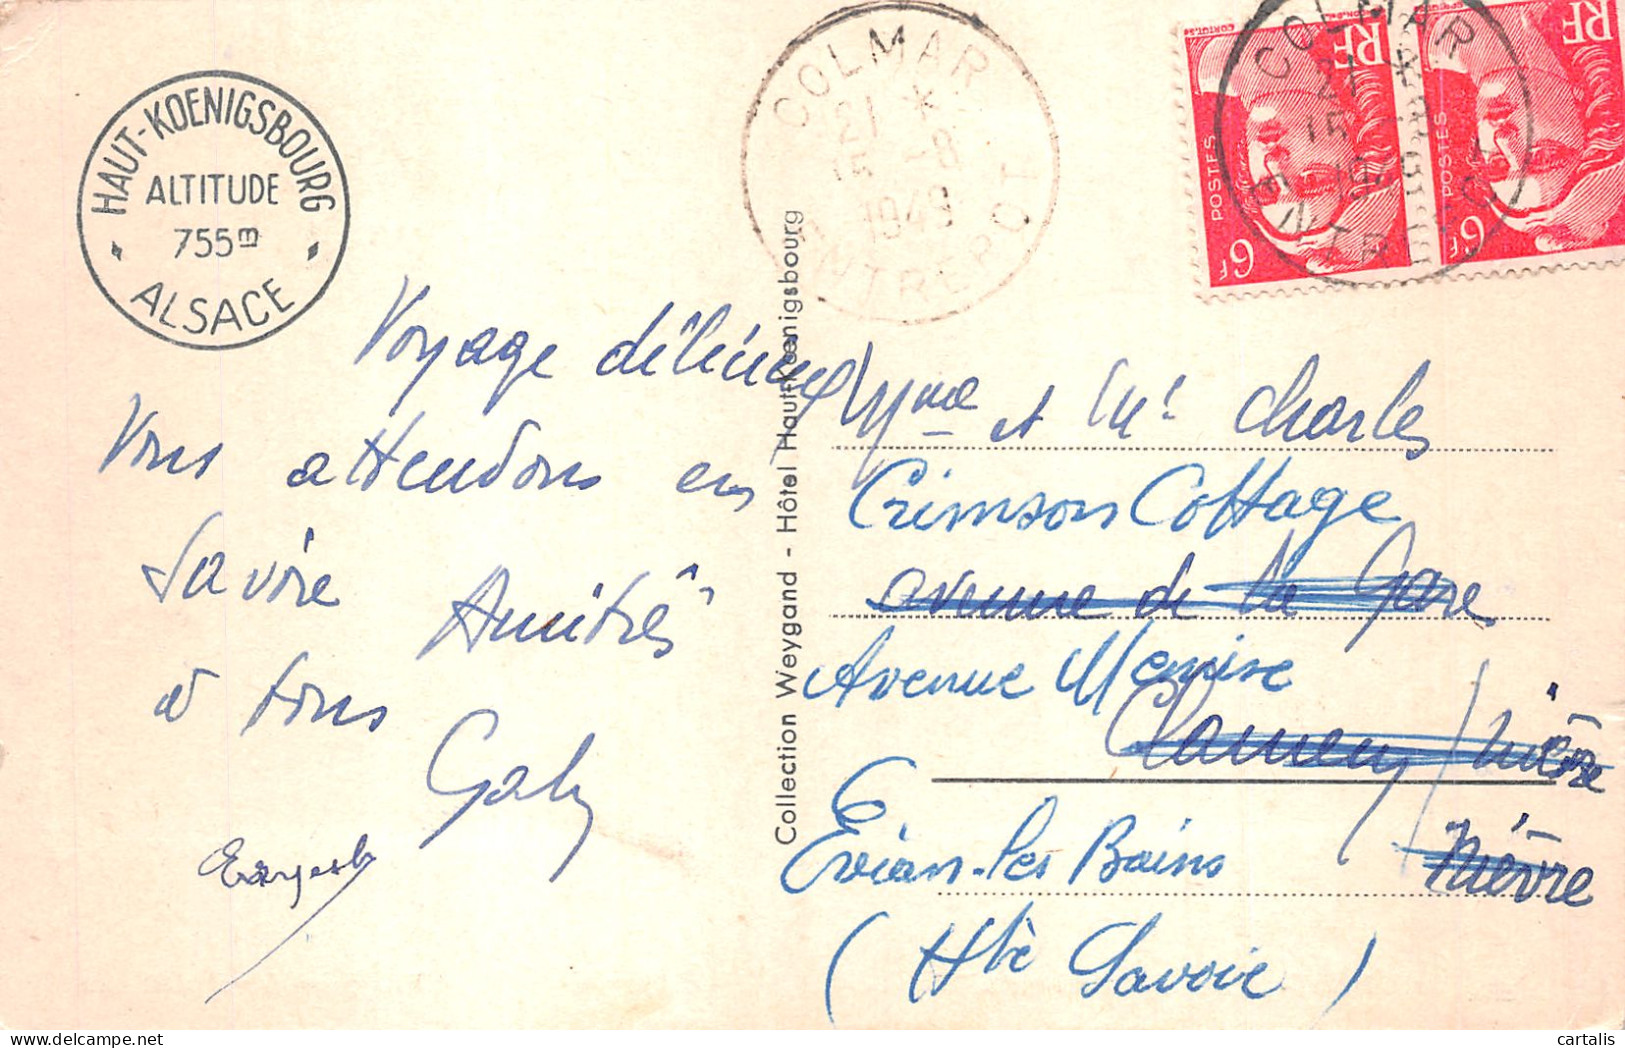 HAUT-KOENIGSBOURG
ALTITUDE
755m
ALSACE
COLMAR
21 *
15 -8
1949
ENTREPOT
RF
POSTES
6F
RF
POSTES
6F
COLMAR
21 *
15
ENTREPOT
Voyage délicieux
Vous attendons en
Savoie Amitiés
à tous
Gaby
Collection Weygand - Hôtel Haut-Kœnigsbourg
Mme et Mr Charles
Crimson Cottage
avenue de la Gare
Avenue
Clamecy / Nièvre
Evian-les Bains
Nièvre
(Hte Savoie)
cartalis